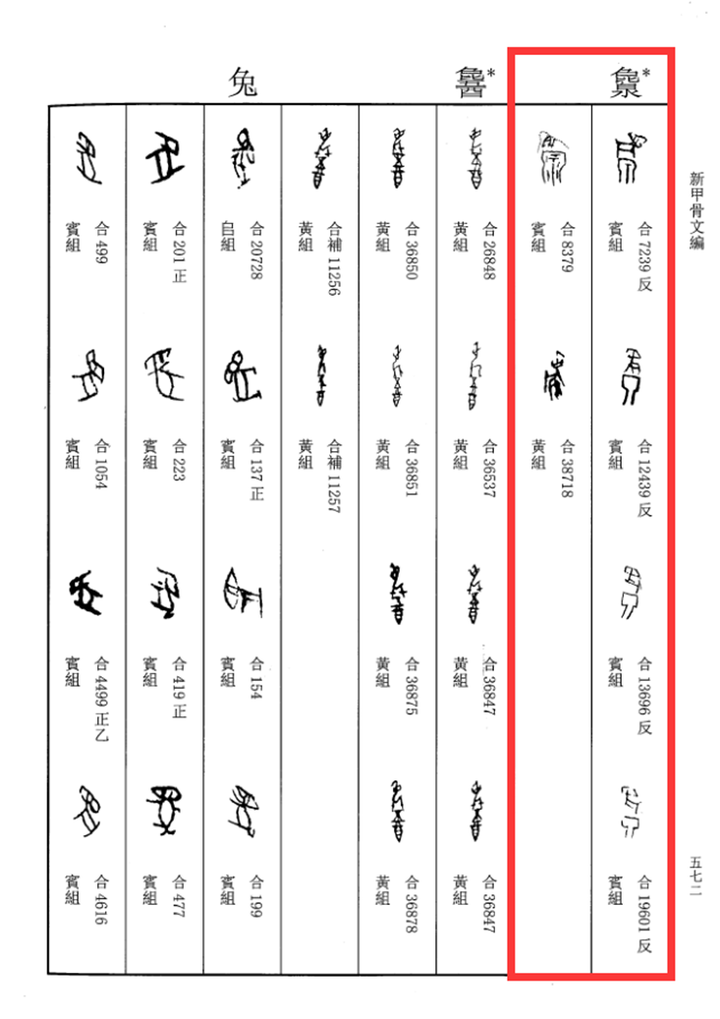 新甲骨文編
五七二
合 7239 反
賓組
合 12439 反
賓組
合 13696 反
賓組
合 19601 反
賓組
合 8379
賓組
合 38718
黃組
合 26848
黃組
合 36537
黃組
合 36847
黃組
合 36847
黃組
合 36850
黃組
合 36851
黃組
合 36875
黃組
合 36878
黃組
合補 11256
黃組
合補 11257
黃組
兔
合 20728
𠂤組
合 137 正
賓組
合 154
賓組
合 199
賓組
合 201 正
賓組
合 223
賓組
合 419 正
賓組
合 477
賓組
合 499
賓組
合 1054
賓組
合 4499 正乙
賓組
合 4616
賓組